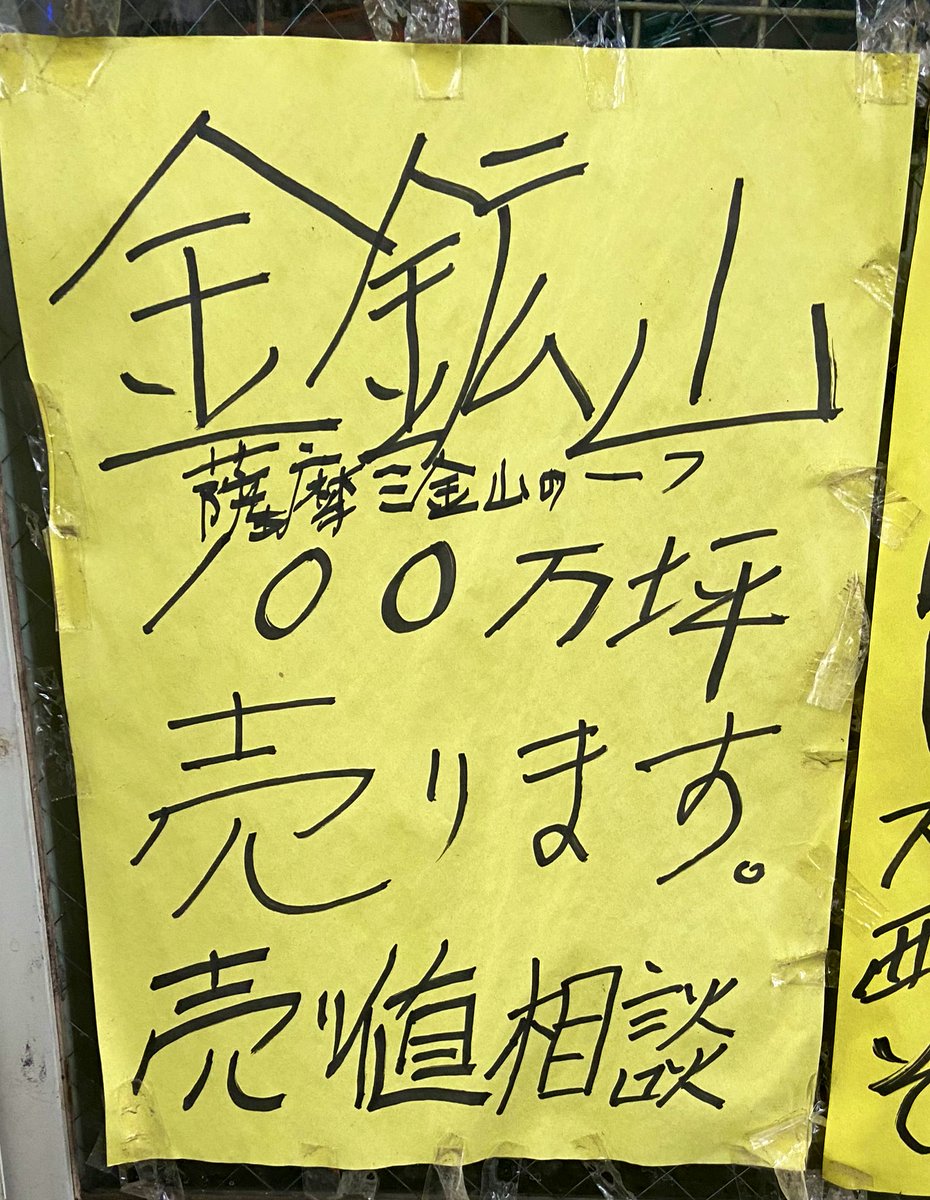 金鉱山
薩摩三金山の一つ
100万坪
売ります。
売り値相談